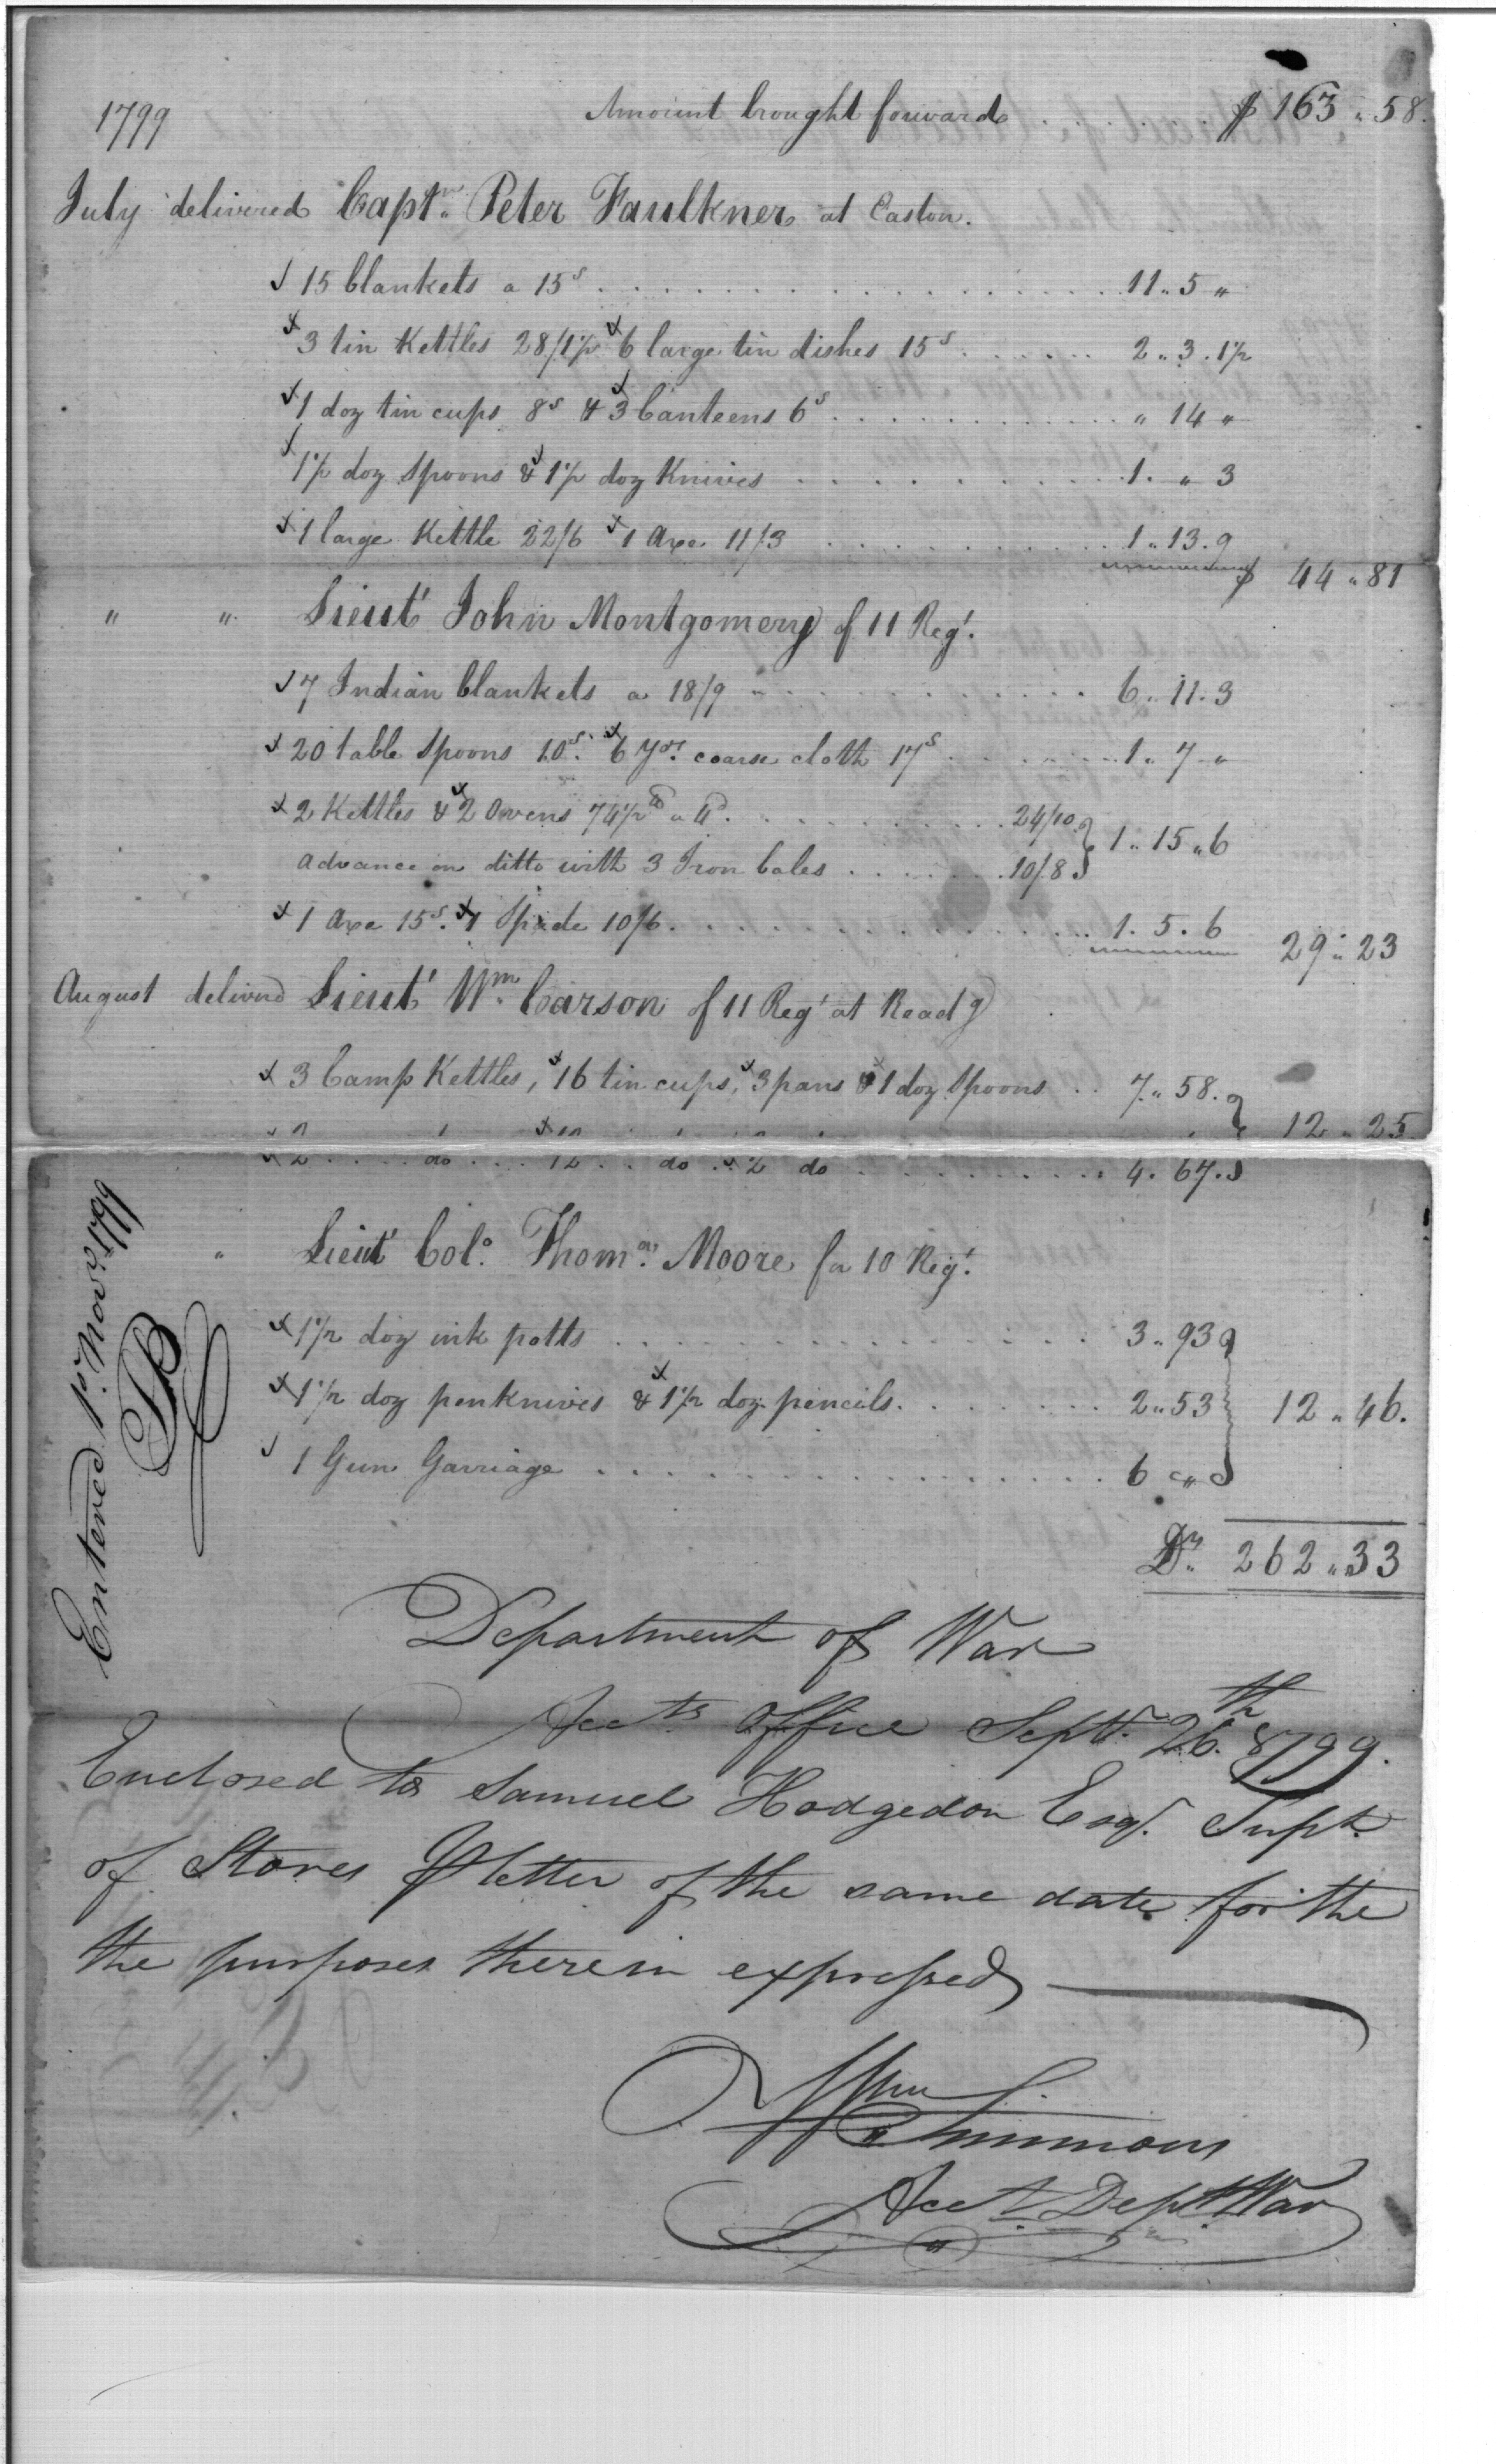 1799
Amount brought forward . . . . . . $ 163 " 58.
July delivered Captn. Peter Faulkner at Easton.
15 blankets a 15s . . . . . . 11 " 5 "
3 tin Kettles 28/1½ 6 large tin dishes 15s . . . . . . 2 " 3 . 1½
1 doz tin cups 8s & 3 Canteens 6s . . . . . . " 14 "
1½ doz Spoons & 1½ doz Knives . . . . . . 1 . " 3
1 large Kettle 22/6 1 Axe 11/3 . . . . . . 1 " 13 . 9
$ 44 " 81
" " Lieut John Montgomery of 11 Regt.
7 Indian blankets a 18/9 . . . . . . 6 " 11 . 3
20 table Spoons 10s. 6 yds. coarse cloth 17s . . . . . . 1 " 7 "
2 Kettles & 2 Ovens 74½ lb a 4d . . . . . . 24/10
1 " 15 " 6
advance on ditto with 3 Iron bales . . . . . . 10/8
1 Axe 15s. 1 Spade 10/6 . . . . . . 1 . 5 . 6
29 " 23
August deliverd Lieut Wm. Carson of 11 Regt at Readg
3 Camp Kettles, 16 tin cups, 3 pans & 1 doz Spoons . . 7 " 58.
12 " 25
2 . . . . do . . . 12 . . do . 2 do . . . . . . 4 . 67.
" Lieut Colo. Thomas. Moore for 10 Regt.
1½ doz ink potts . . . . . . 3 " 93
1½ doz penknives & 1½ doz pencils . . . . . . 2 " 53
12 " 46.
1 Gun Garriage . . . . . . 6 "
Drs. 262 " 33
Entered 1st. Novr. 1799
Department of War
Accts Office Septr. 26.th 1799.
Enclosed to Samuel Hodgedon Esqr. Supt.
of Stores ⅌ letter of the same date for the
the purposes therein expressed
Wm
Simmons
Acct. Dept War